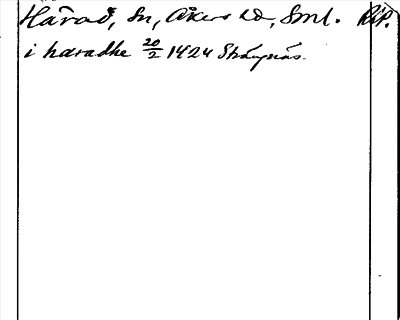 Härad, Sn, Åkers hd, Sml. RAP.
i haradhe 20/2 1424 Strängnäs.